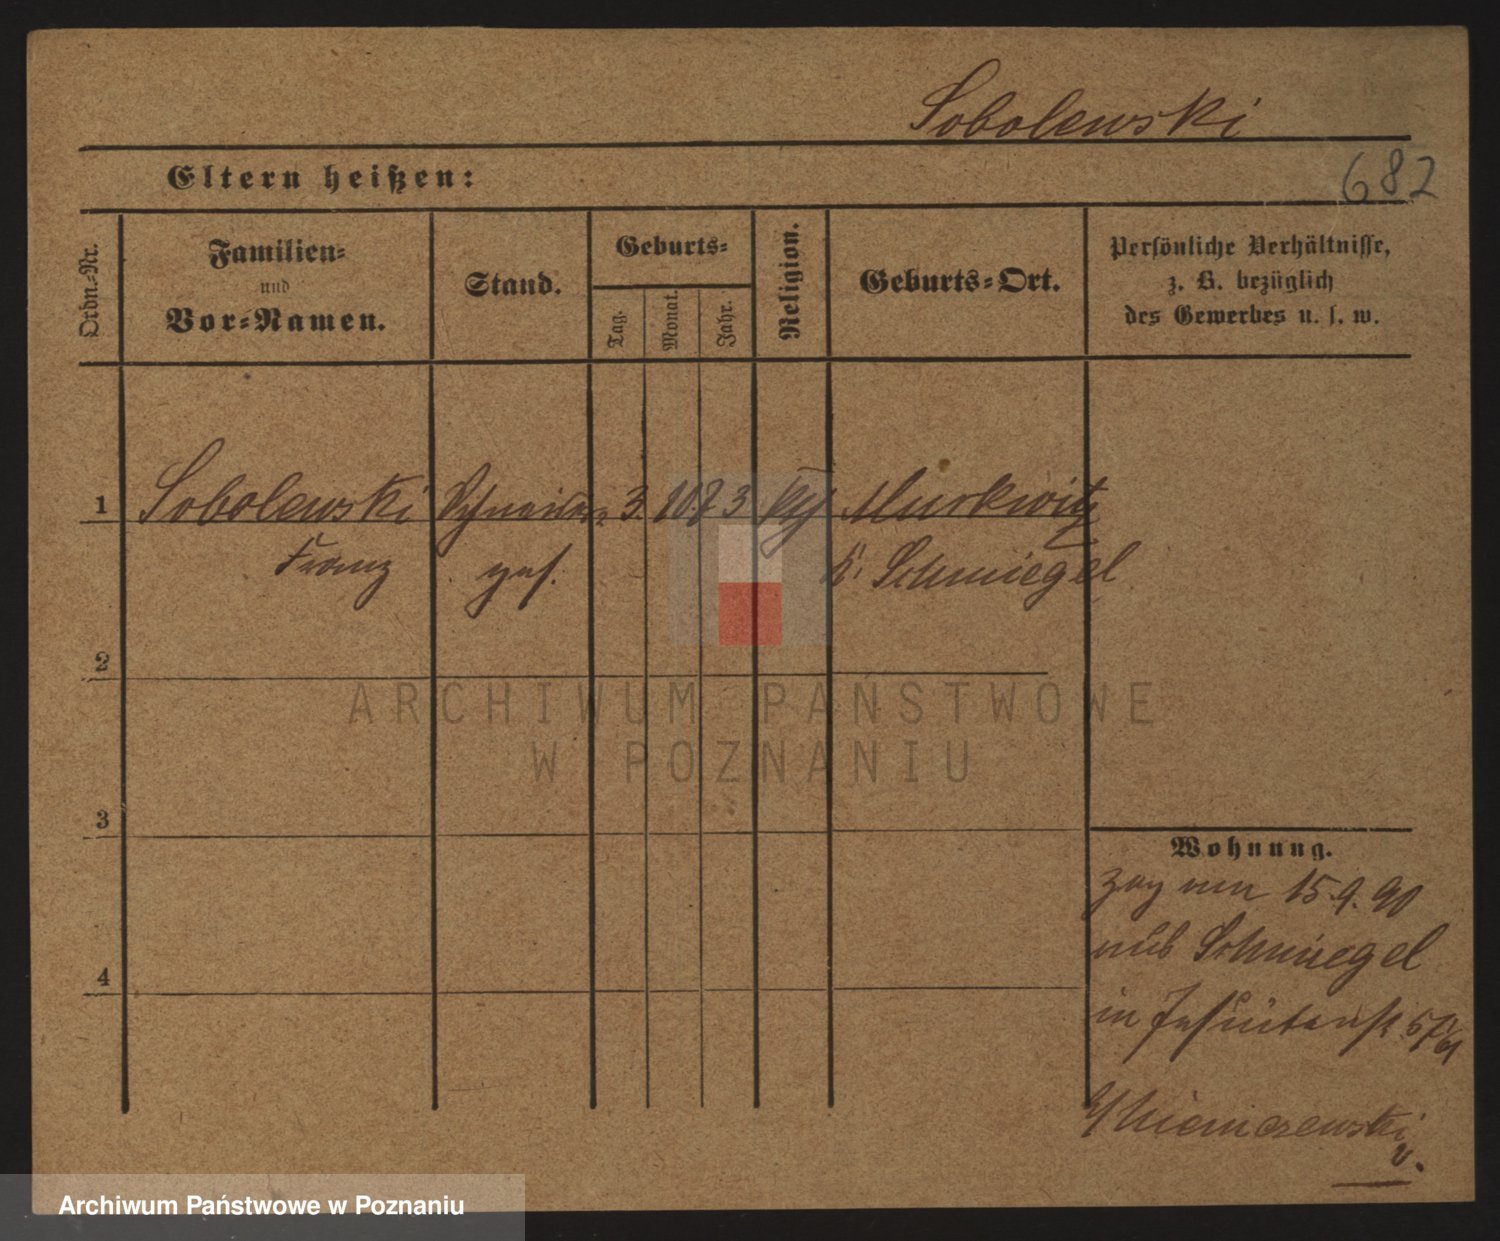 Sobolewski
Eltern heißen:
682
Ordn.-Nr.
Familien-
und
Vor-Namen.
Stand.
Geburts-
Tag.
Monat.
Jahr.
Religion.
Geburts-Ort.
Persönliche Verhältnisse,
z. B. bezüglich
des Gewerbes u. s. w.
1 Sobolewski Schneider 3. 10. 73 kth Murkwitz
Franz ges. K. Schmiegel
2
ARCHIWUM PAŃSTWOWE
W POZNANIU
3
Wohnung.
zog am 15.9.90
aus Schmiegel
4
in Jesuitenstr 5
Archiwum Państwowe w Poznaniu